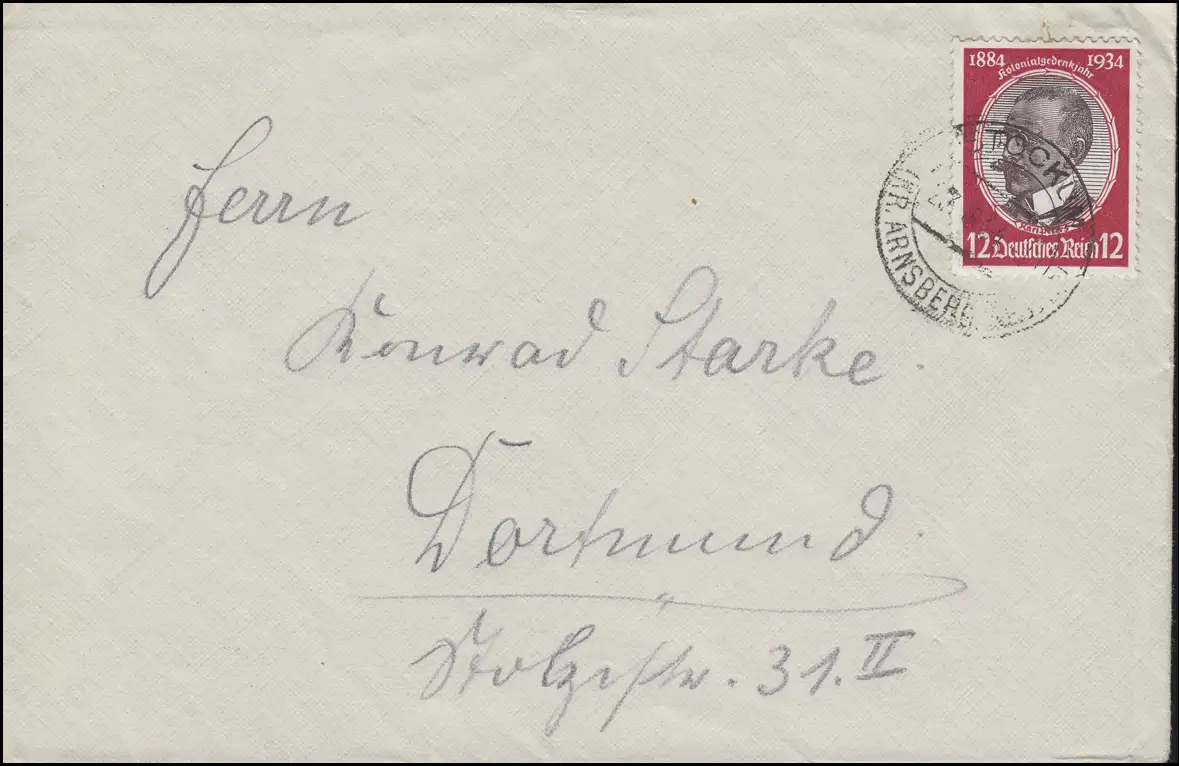 1884 1934
Kolonialgedenkjahr
Karl Peters
12 Deutsches Reich 12
STOCKU
(KR. ARNSBERG
Herrn
Konrad Starke.
Dortmund.
31. II